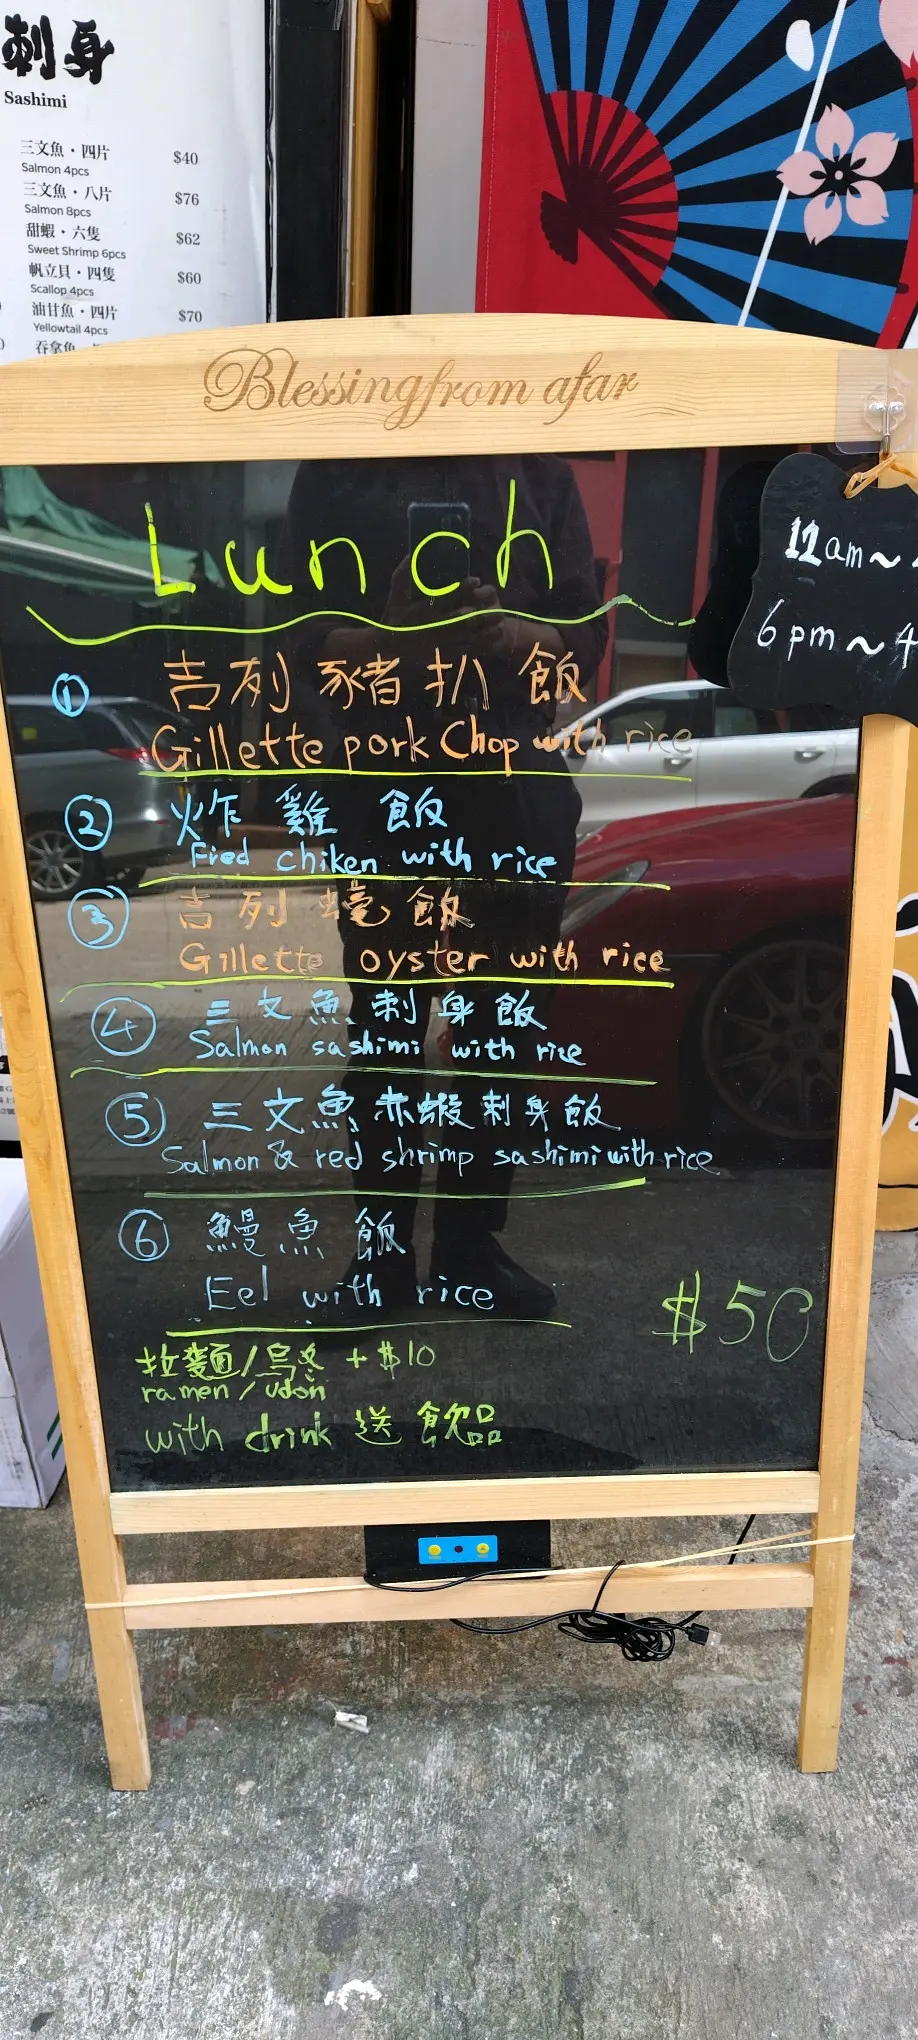 刺身
Sashimi
三文魚・四片 $40
Salmon 4pcs
三文魚・八片 $76
Salmon 8pcs
甜蝦・六隻 $62
Sweet Shrimp 6pcs
帆立貝・四隻 $60
Scallop 4pcs
油甘魚・四片 $70
Yellowtail 4pcs
吞拿魚
Blessing from afar
Lunch
12am~
6pm~
① 吉列豬扒飯
Gillette pork Chop with rice
② 炸雞飯
Fied chiken with rice
③ 吉列蠔飯
Gillette oyster with rice
④ 三文魚刺身飯
Salmon sashimi with rice
⑤ 三文魚赤蝦刺身飯
Salmon & red shrimp sashimi with rice
⑥ 鰻魚飯
Eel with rice
$50
拉麵/烏冬 + $10
ramen/udon
with drink 送飲品